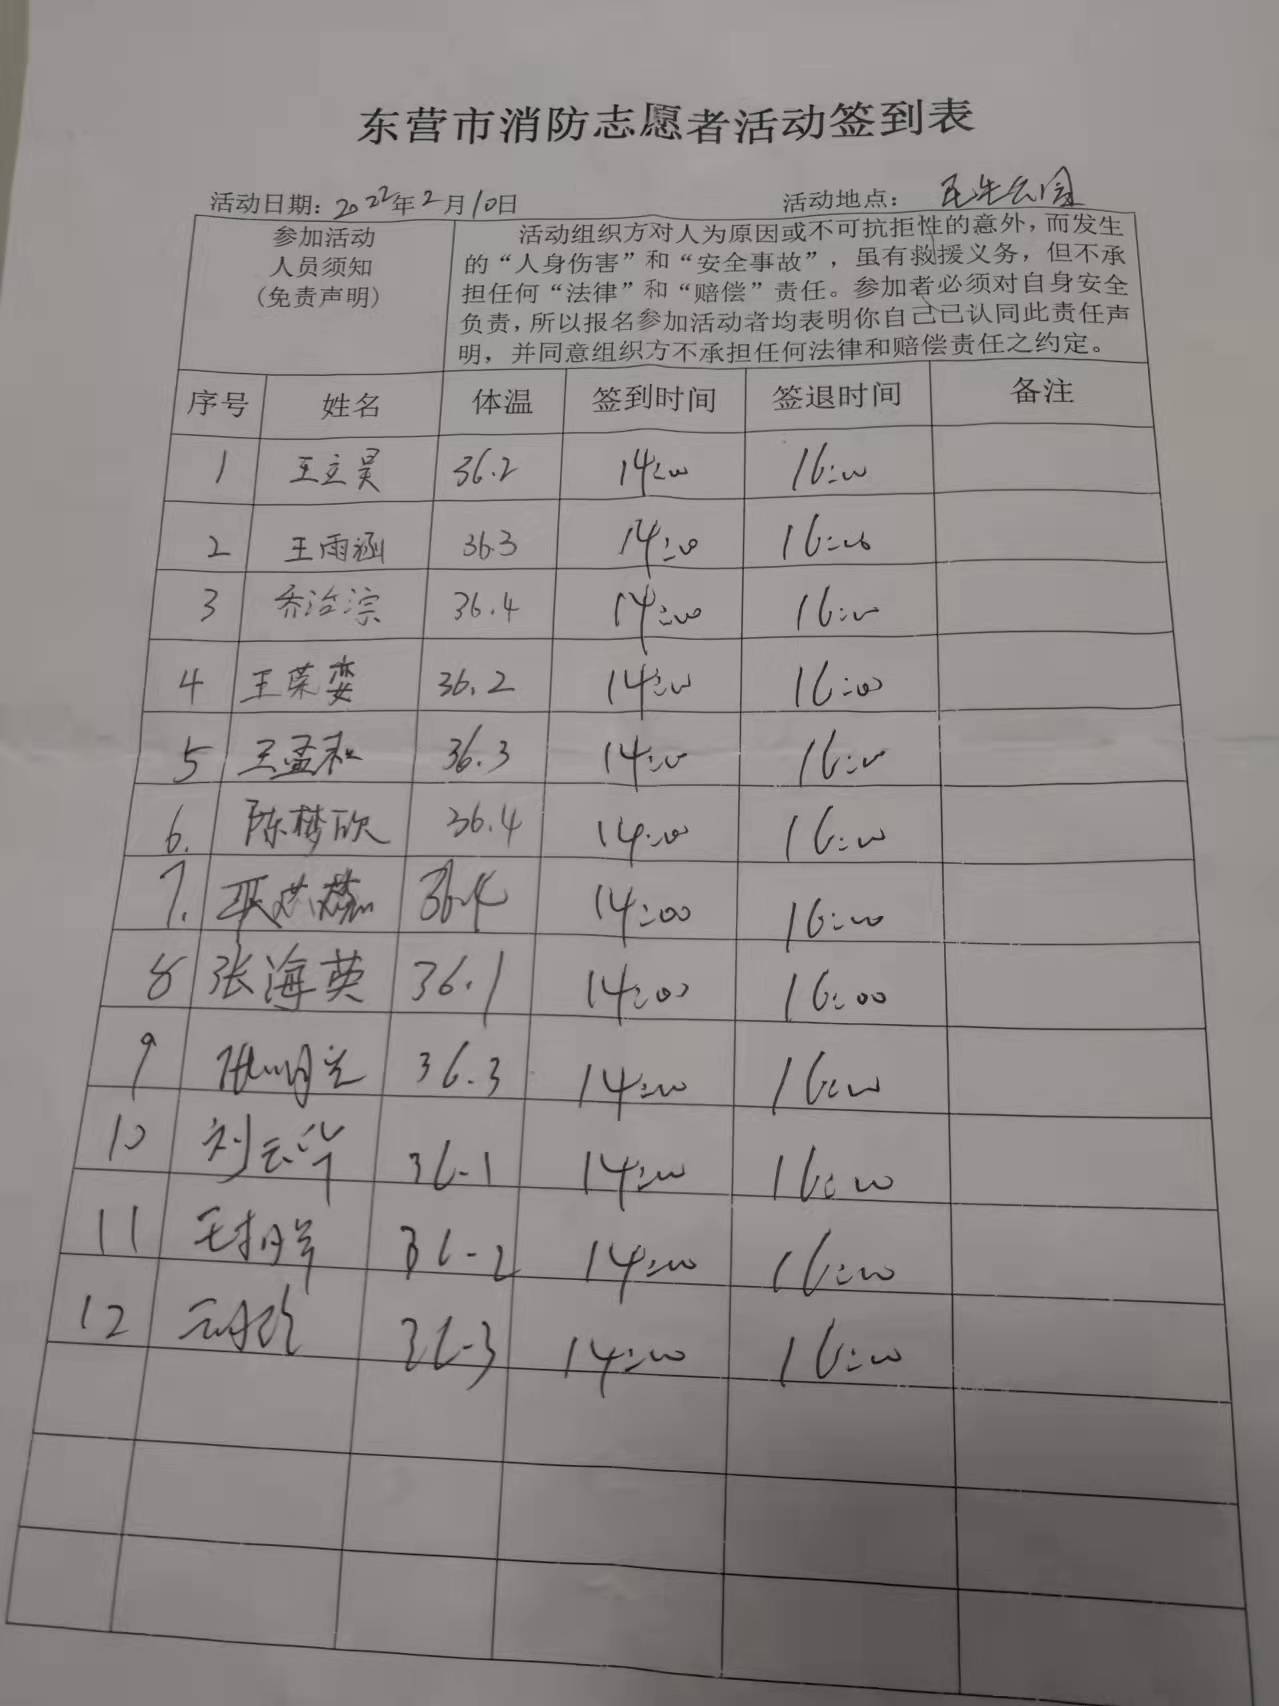 东营市消防志愿者活动签到表
活动日期：2022年2月10日 活动地点：民生公园
参加活动
人员须知
(免责声明)
活动组织方对人为原因或不可抗拒性的意外，而发生
的“人身伤害”和“安全事故”，虽有救援义务，但不承
担任何“法律”和“赔偿”责任。参加者必须对自身安全
负责，所以报名参加活动者均表明你自己已认同此责任声
明，并同意组织方不承担任何法律和赔偿责任之约定。
序号 姓名 体温 签到时间 签退时间 备注
1 王立昊 36.2 14:00 16:00
2 王雨涵 36.3 14:00 16:00
3 乔治淙 36.4 14:00 16:00
4 王荣娈 36.2 14:00 16:00
5 王孟和 36.3 14:00 16:00
6. 陈梦欣 36.4 14:00 16:00
7. 36.4 14:00 16:00
8 张海英 36.1 14:00 16:00
9 36.3 14:00 16:00
10 刘云华 36.1 14:00 16:00
11 36.2 14:00 16:00
12 36.3 14:00 16:00